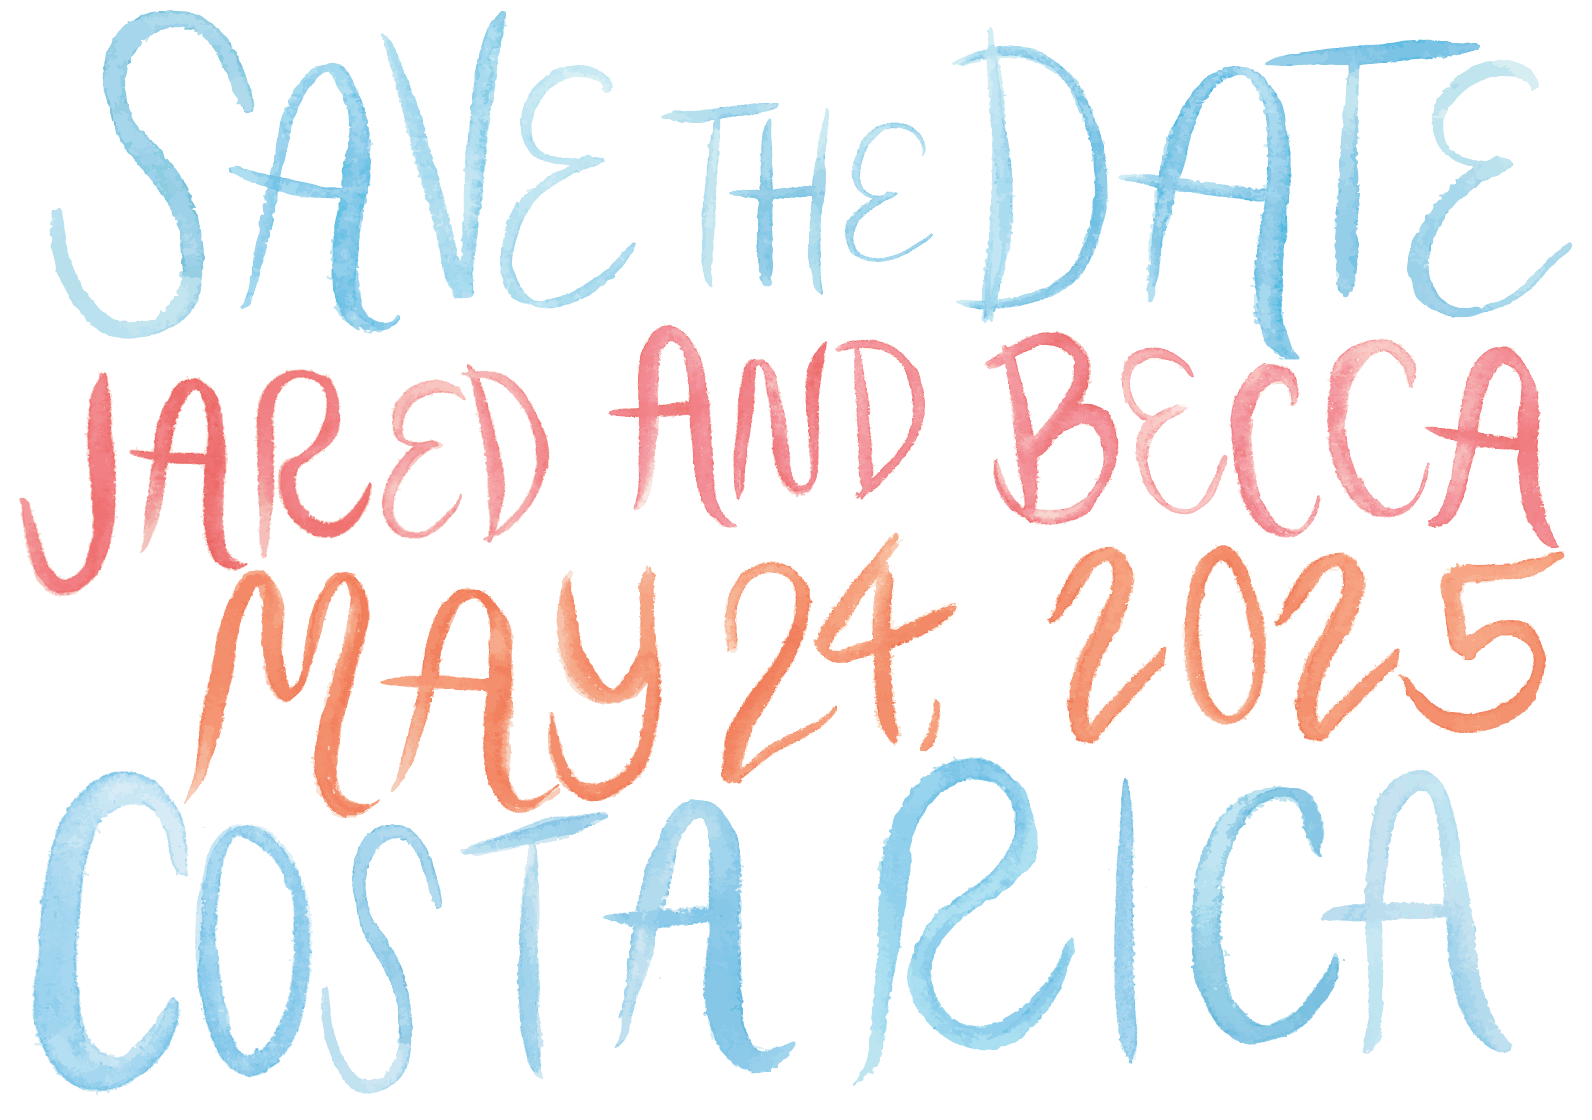 SAVE THE DATE
JARED AND BECCA
MAY 24, 2025
COSTA RICA